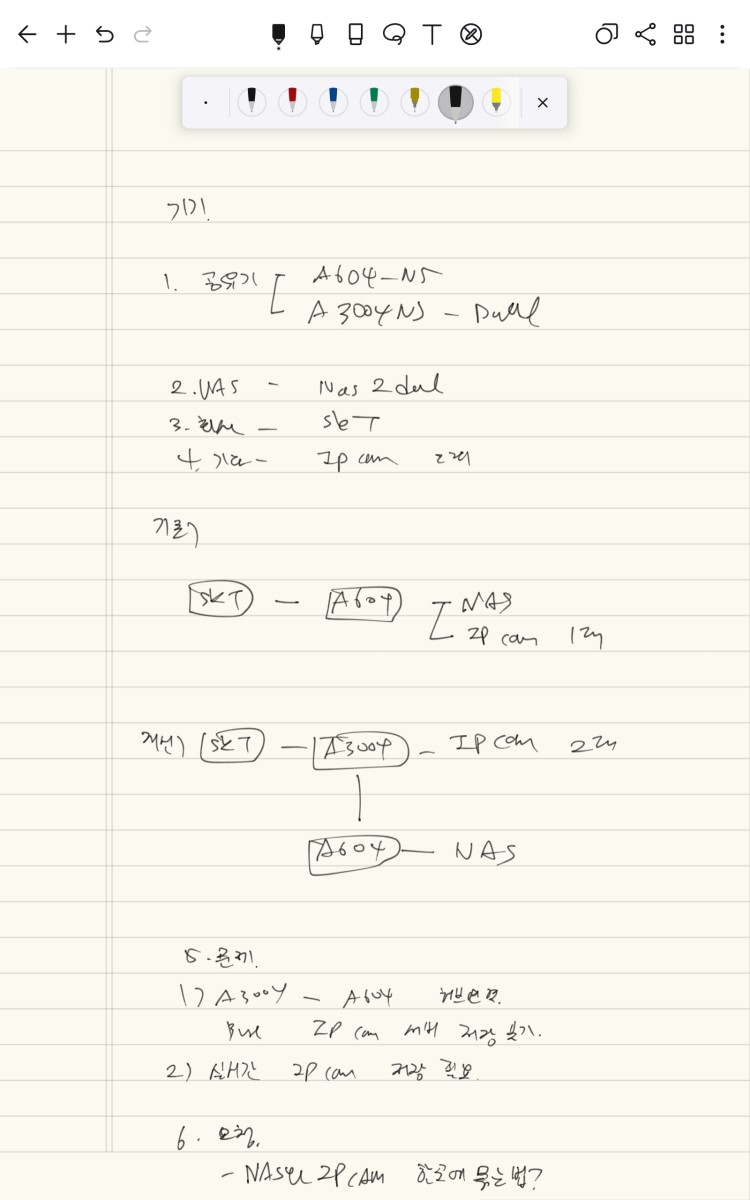 기기
1. 공유기 [ A604-N5
A3004NS - Dual
2. NAS - Nas 2dual
3. 회사 - SKT
4. 기타 - Ip cam 2개
기존)
SKT - A604 [ NAS
IP cam 1개
개선) SKT - A3004 - IP cam 2개
A604 - NAS
5. 문제
1) A3004 - A604 허브연결.
IP cam 서버 저장 불가.
2) 실시간 IP cam 저장 필요.
6. 요청.
- NAS IP CAM 한곳에 묶는법?